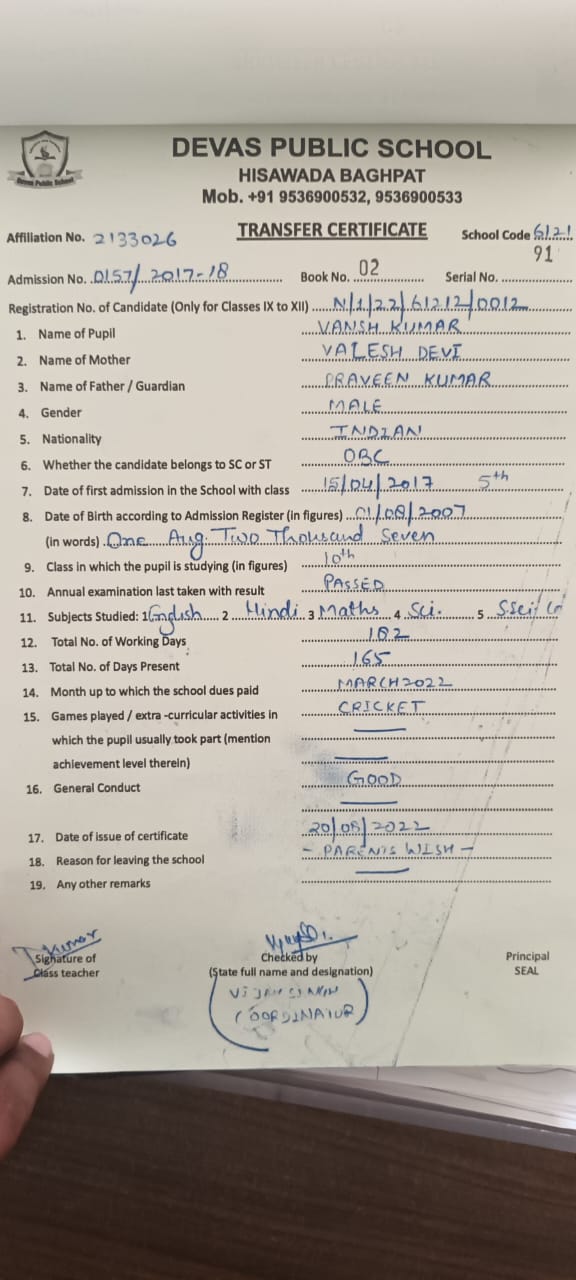 Devas Public School
DEVAS PUBLIC SCHOOL
HISAWADA BAGHPAT
Mob. +91 9536900532, 9536900533
TRANSFER CERTIFICATE
Affiliation No. 2133026 School Code 6121
Admission No. 0157/2017-18 Book No. 02 Serial No. 91
Registration No. of Candidate (Only for Classes IX to XII) N/1/22/61212/0012
1. Name of Pupil VANSH KUMAR
2. Name of Mother VALESH DEVI
3. Name of Father / Guardian PRAVEEN KUMAR
4. Gender MALE
5. Nationality INDIAN
6. Whether the candidate belongs to SC or ST OBC
7. Date of first admission in the School with class 15/04/2017 5th
8. Date of Birth according to Admission Register (in figures) 01/08/2007
(in words) One Aug. Two Thousand Seven
9. Class in which the pupil is studying (in figures) 10th
10. Annual examination last taken with result PASSED
11. Subjects Studied: 1 English 2 Hindi 3 Maths 4 Sci. 5 SSci/
12. Total No. of Working Days 182
13. Total No. of Days Present 165
14. Month up to which the school dues paid MARCH 2022
15. Games played / extra -curricular activities in CRICKET
which the pupil usually took part (mention
achievement level therein)
16. General Conduct GOOD
17. Date of issue of certificate 20/08/2022
18. Reason for leaving the school - PARENTS WISH -
19. Any other remarks
Kumar
Signature of Checked by Principal
Class teacher (State full name and designation) SEAL
(COORDINATOR)